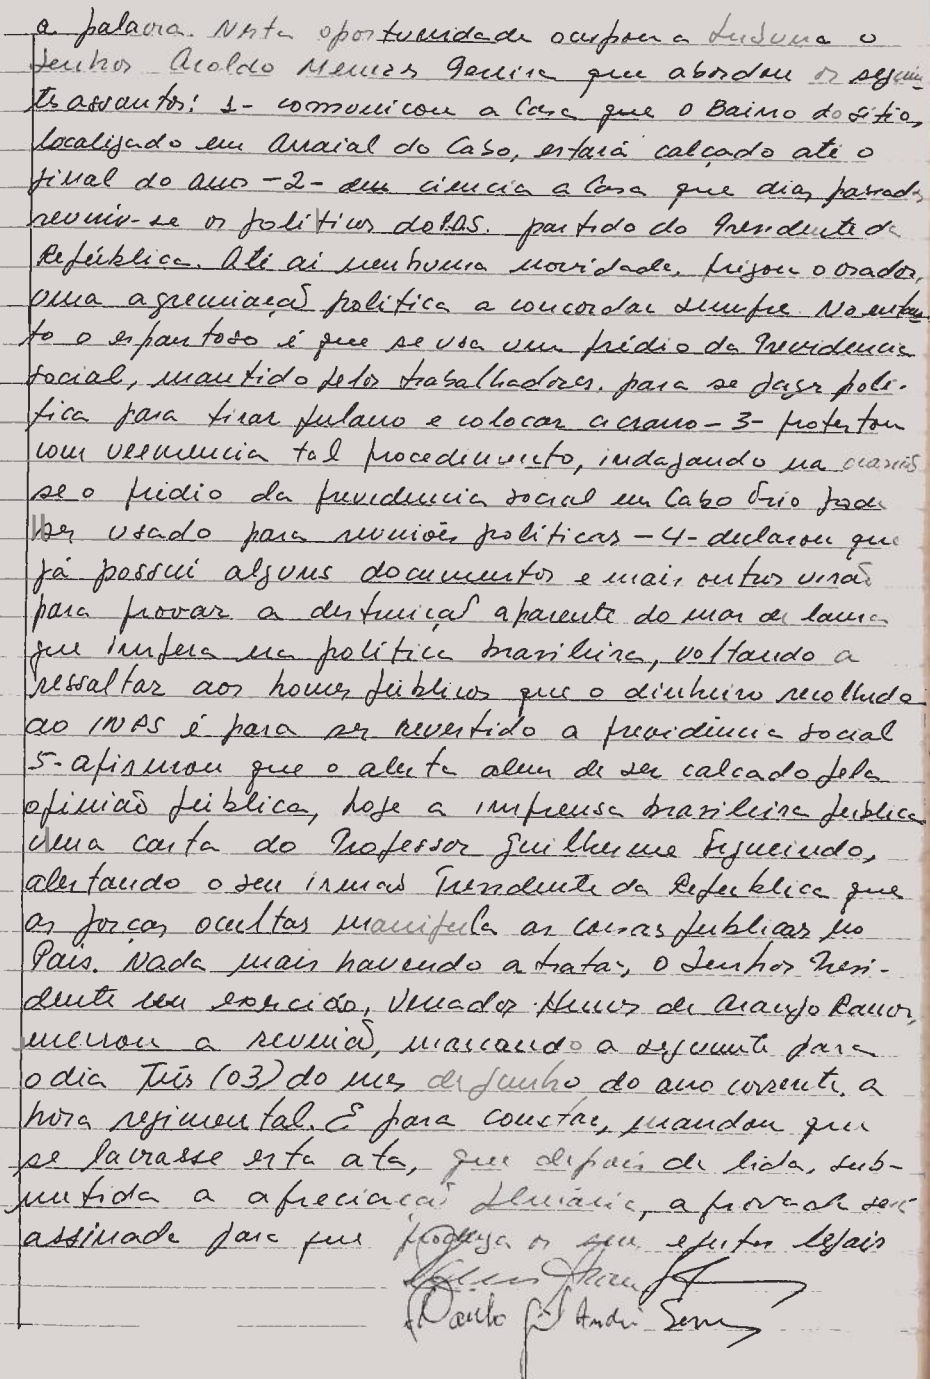 a palavra. Nesta oportunidade ocupou a tribuna o
Senhor Aroldo Menezes Pereira que abordou os seguin
tes assuntos: 1- comunicou a Casa que o Bairro do sitio,
localizado em Arraial do Cabo, estará calçado até o
final do ano - 2 - deu ciencia a Casa que dias passados
reuniu-se os políticos do P.D.S. partido do Presidente da
República. Até ai nenhuma novidade, frizou o orador,
uma agremiação politica a concordar sempre. No entan
to o espantoso é que se usa um prédio da Previdencia
social, mantido pelos trabalhadores, para se fazer poli-
tica para tirar fulano e colocar cicrano - 3 - protestou
com veemencia tal procedimento, indagando na ocasião
se o prédio da previdencia social em Cabo Frio pode
ser usado para reuniões políticas - 4 - declarou que
já possui alguns documentos e mais outros virão
para provar a destruição aparente do mar de lama
que impera na política brasileira, voltando a
ressaltar aos homes públicos que o dinheiro recolhido
ao INPS é para ser revertido a previdência social
5 - afirmou que o alerta alem de ser calcado pela
opinião pública, hoje a imprensa brasileira publica
uma carta do Professor Guilherme Figueiredo,
alertando o seu irmão Presidente da República que
as forças ocultas manipula as coisas publicas no
País. Nada mais havendo a tratar, o Senhor Presi-
dente em exercício, Vereador Hermes de Araujo Ramos,
encerrou a reunião, marcando a seguinte para
o dia Três (03) do mes de Junho do ano corrente. a
hora regimental. E para constar, mandou que
se lavrasse esta ata, que depois de lida, sub-
metida a apreciação plenária, aprovada será
assinada para que produza os seus efeitos legais